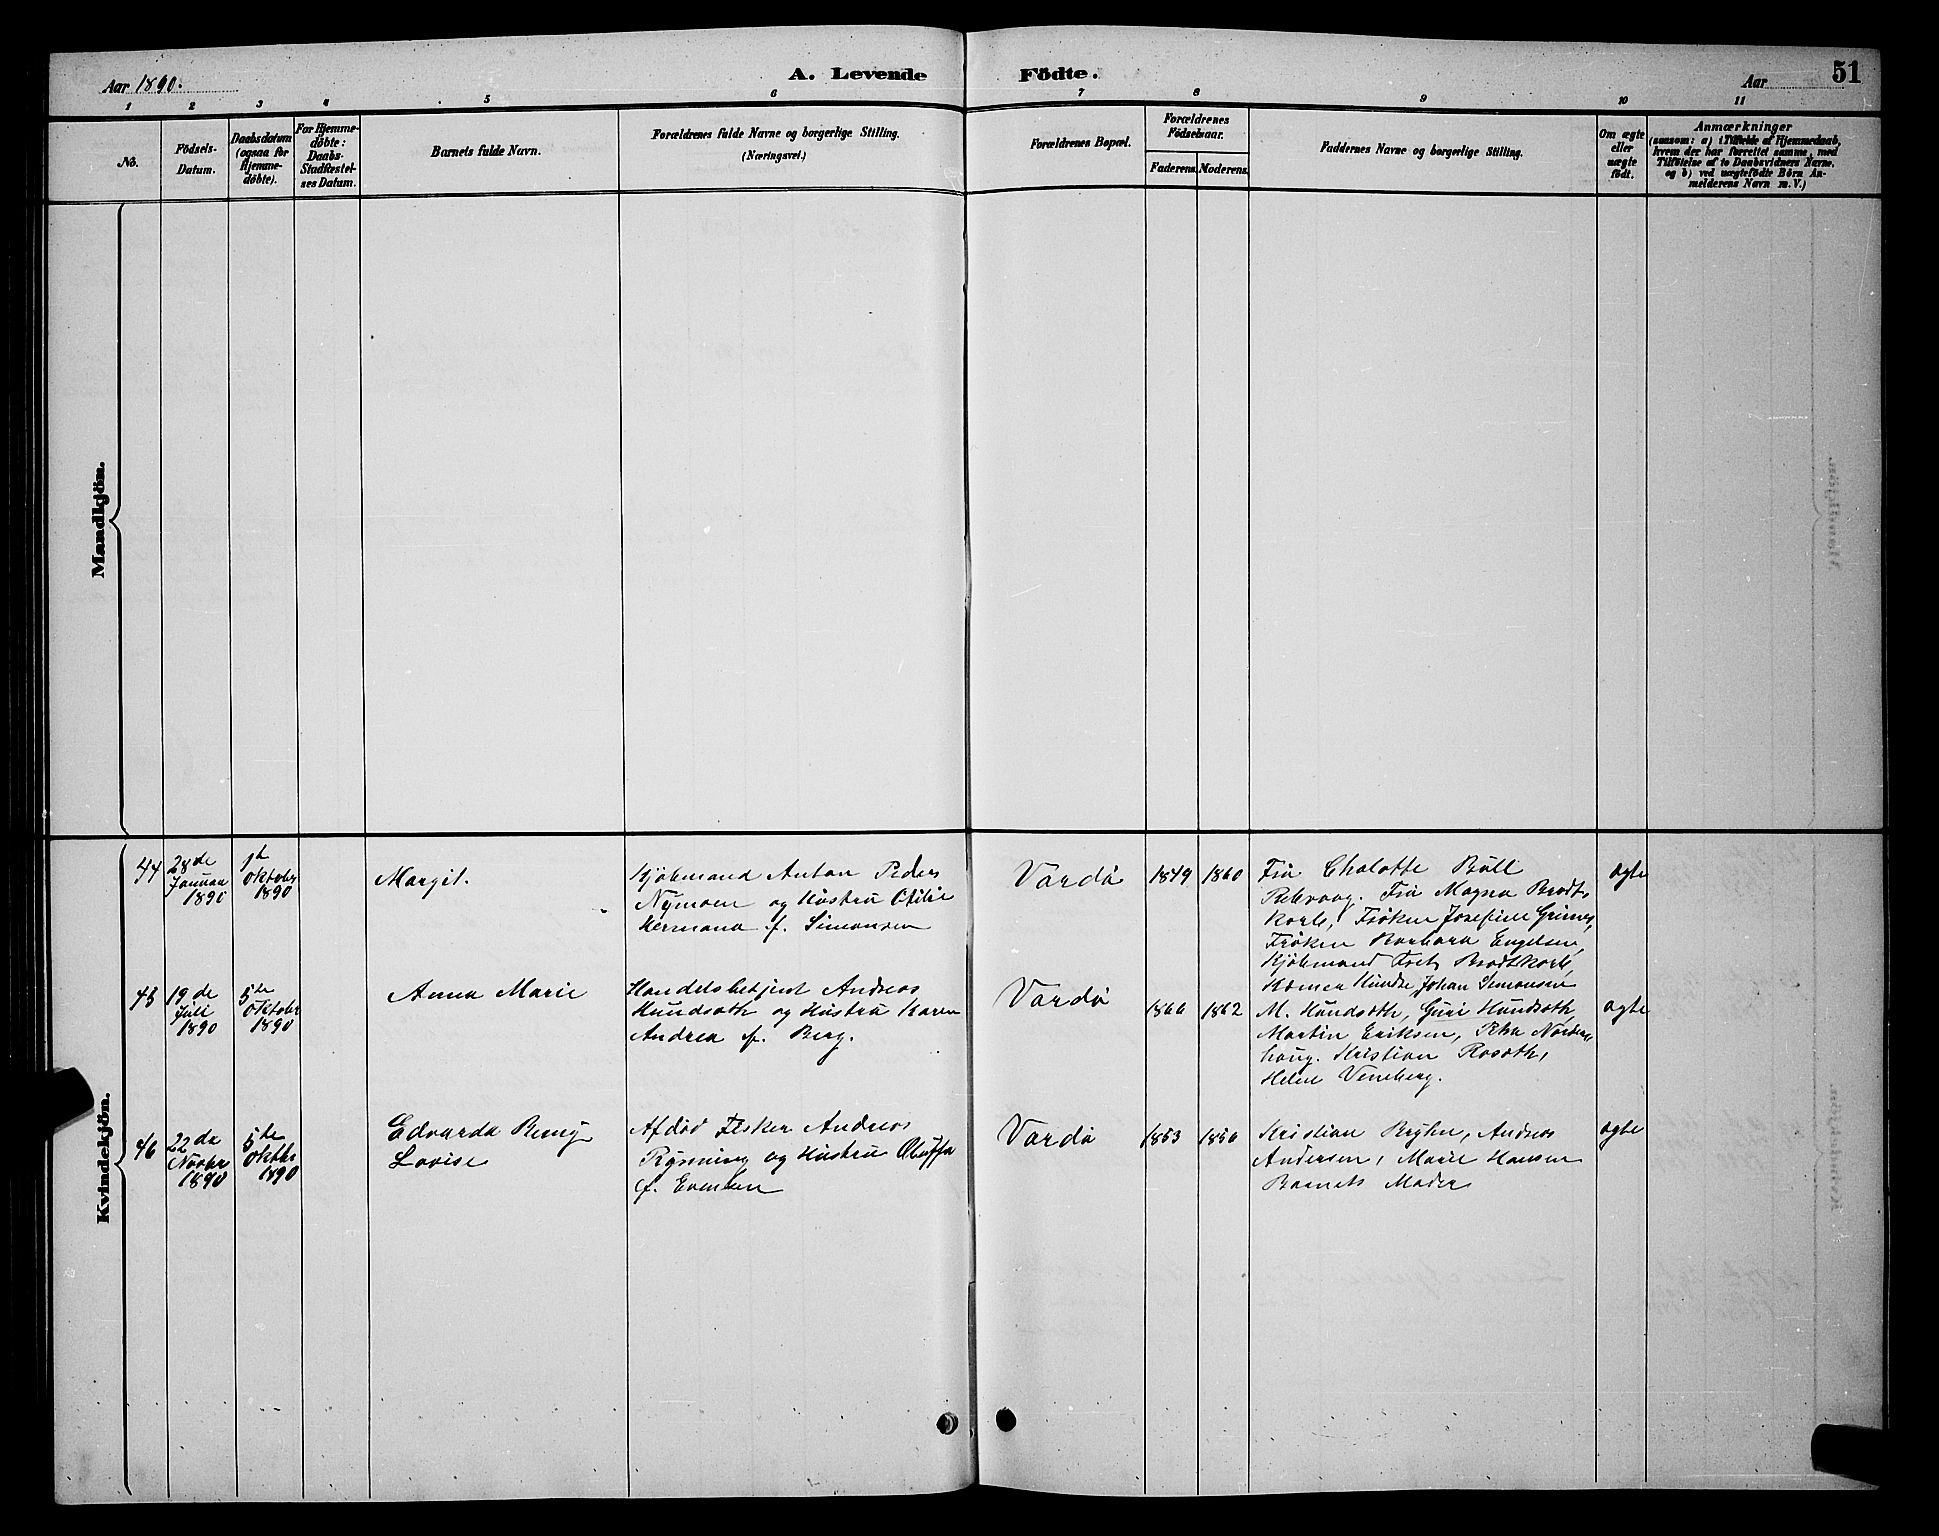 Aar 1890.
A. Levende Födte.
Aar
51
1 2 3 4 5 6 7 8 9 10 11
No.
Födsels-
Datum.
Daabsdatum
(ogsaa for
Hjemme-
döbte).
For Hjemme-
döbte:
Daabs-
Stadfæstel-
ses Datum.
Barnets fulde Navn.
Forældrenes fulde Navne og borgerlige Stilling.
(Næringsvei.)
Forældrenes Bopæl.
Forældrenes
Födselsaar.
Faderens. Moderens.
Faddernes Navne og borgerlige Stilling.
Om ægte
eller
uægte
födt.
Anmærkninger
(saasom: a) i Tilfælde af Hjemmedaab,
hvem der har forrettet samme, med
Tilföielse af to Daabsvidners Navne.
og b) ved uægtefödte Börn An-
melderens Navn m. V.)
Mandkjön.
Kvindekjön.
44
28de
Januar
1890
1te
Oktobr
1890
Margit.
Kjöbmand Anton Peder
Nymoen og Hustru Otilie
Hermana f. Simonsen
Vardö
1849
1860
Fru Chalotte Büll
Fru Magna Brodt-
korb, Fröken Josefine Grimes,
Fröken Barbara Engelsen,
Kjöbmand Brodtkorb,
Johan Simonsen
ægte
45
19de
Juli
1890
5te
Oktobr
1890
Anna Marie
Handelsbetjent Andreas
Hundsoth og Hustru Karen
Andrea f. Berg.
Vardö
1866
1862
M. Hundsoth, Guri Hundsoth,
Martin Eriksen,
haug. Kristian Rosoth,
Helene
ægte
46
22de
Novbr
1890
5te
Oktbr
1890
Edvarda
Lovise
Afdöd Fisker Andreas
Rysning og Hustru Oluffa
f. Evensen
Vardö
1853
1856
Kristian Bryhn, Andreas
Andersen, Marie Hansen
Barnets Moder
ægte